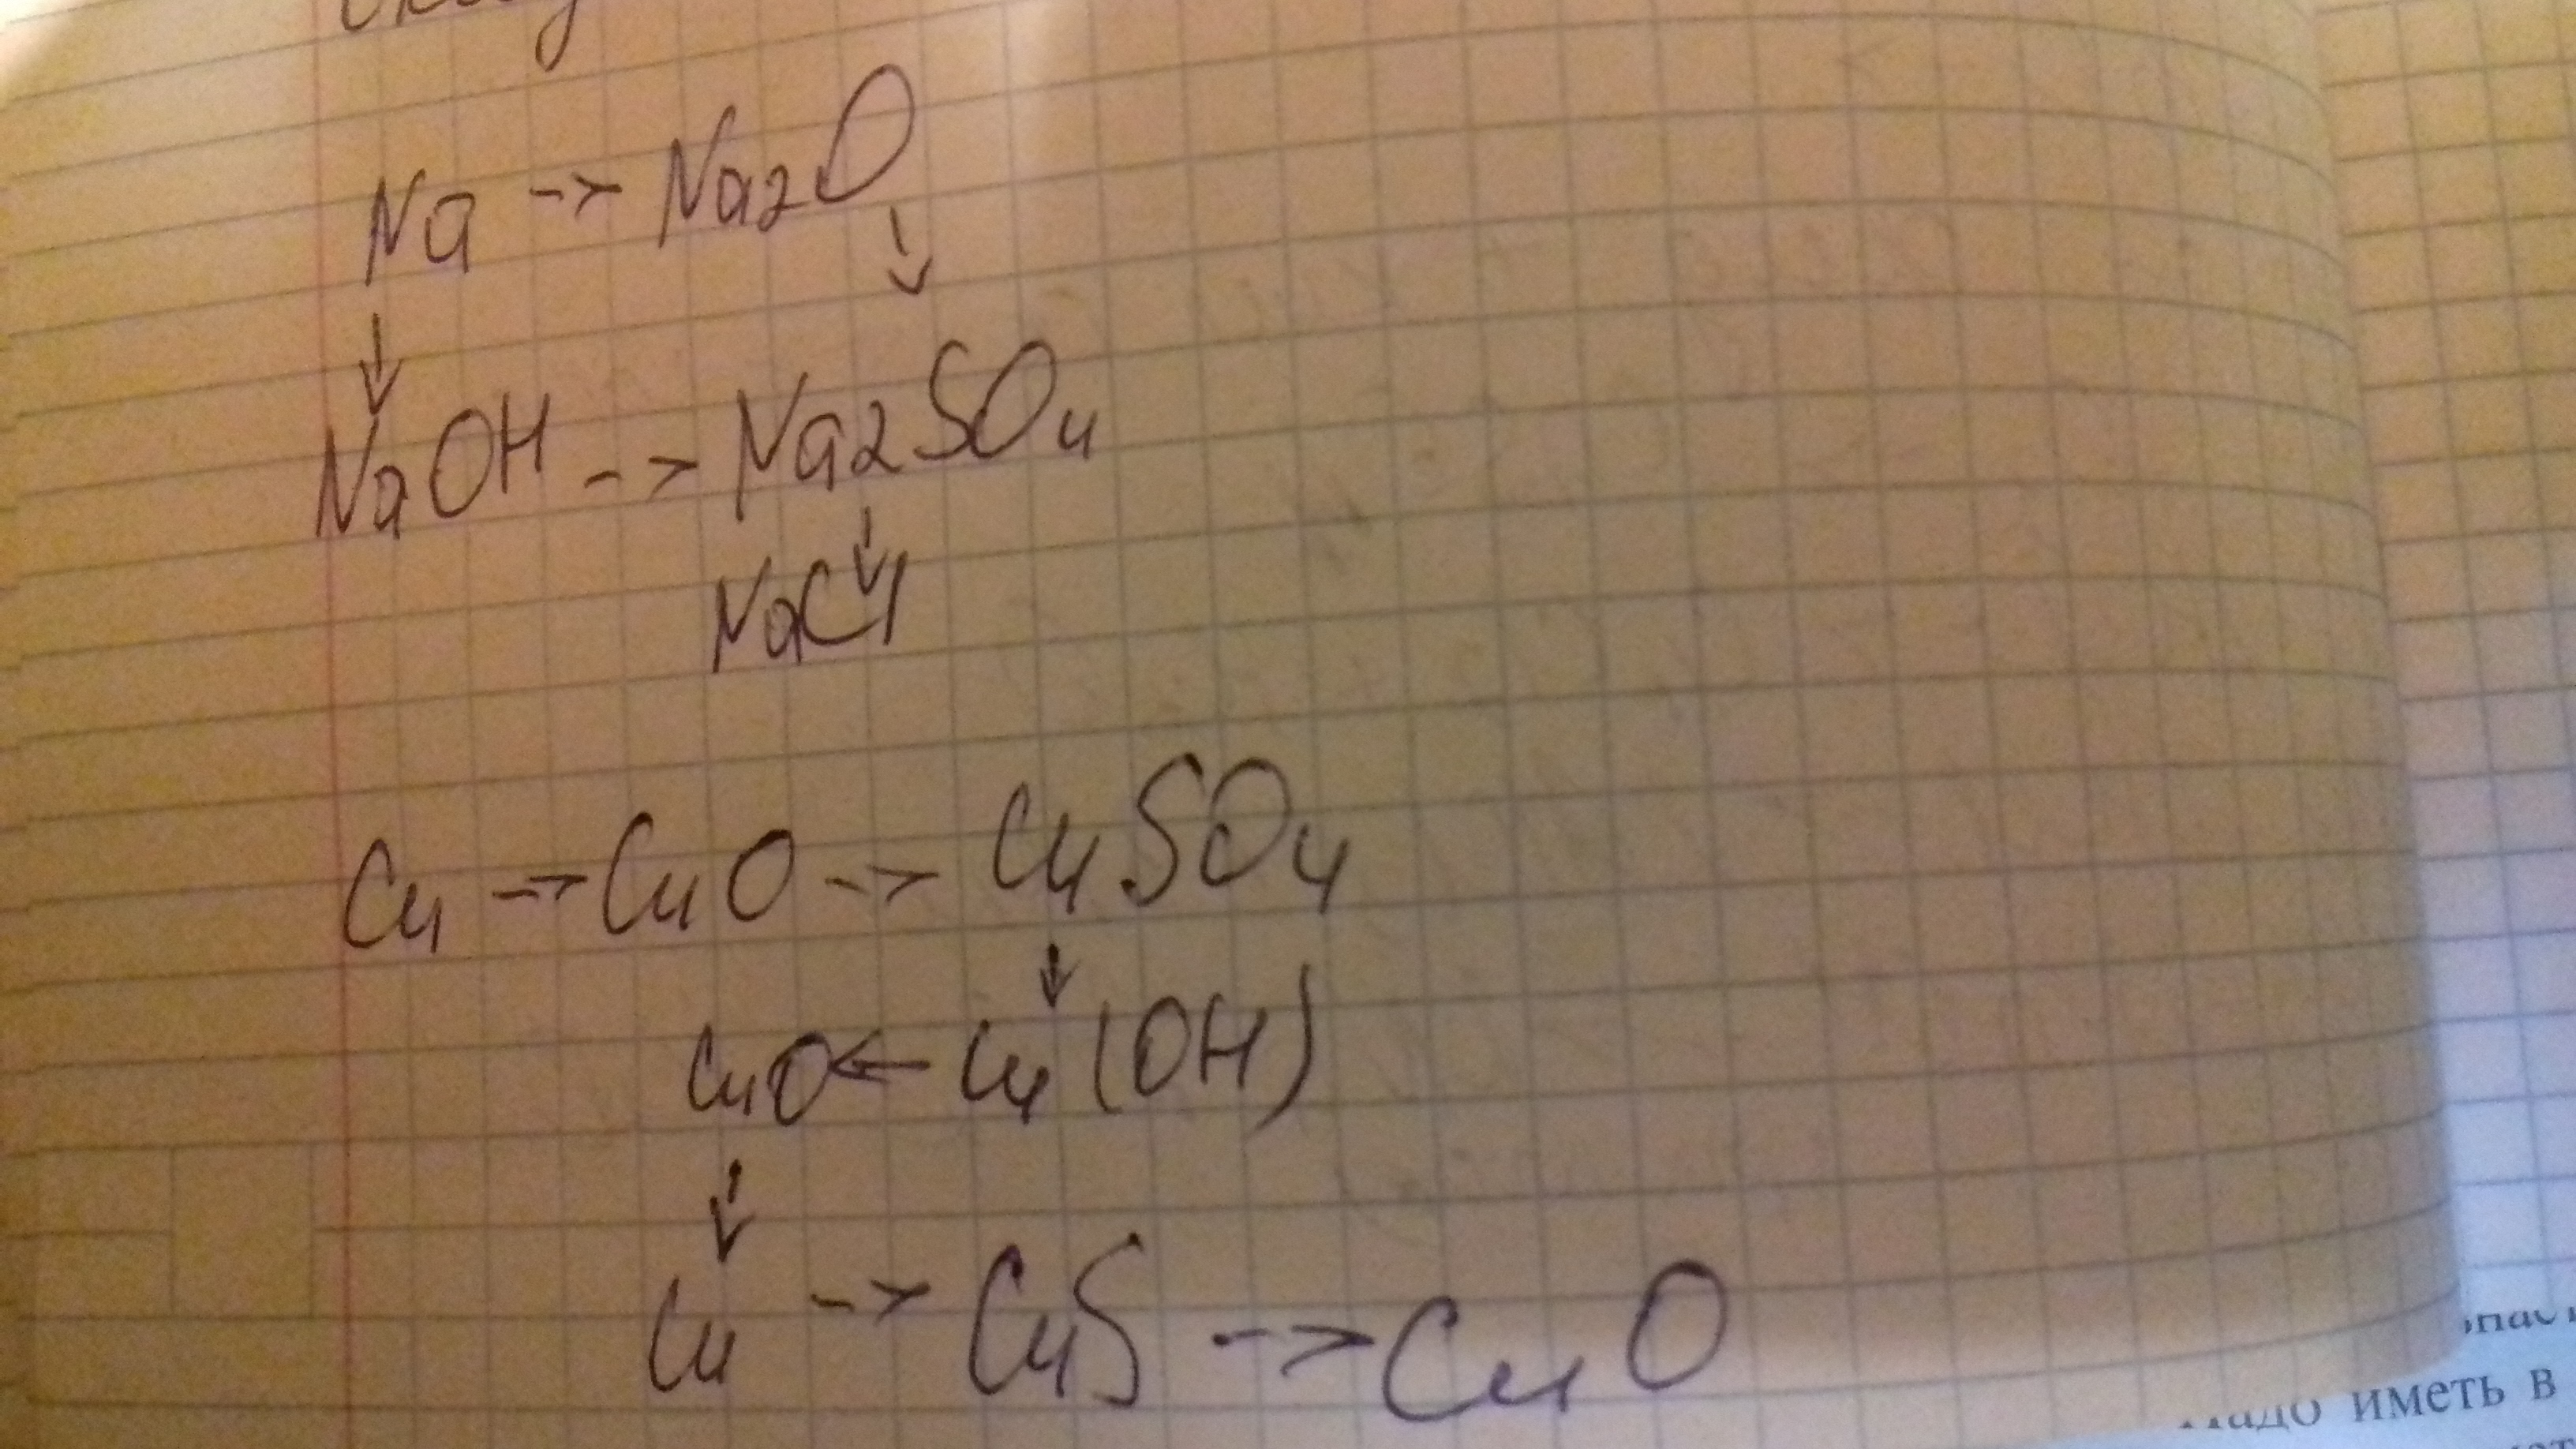 Na -> Na2O
↓ ↓
NaOH -> Na2SO4
↓
NaCl
Cu -> CuO -> CuSO4
↓
CuO <- Cu(OH)
↓
Cu -> CuS -> CuO
иметь в